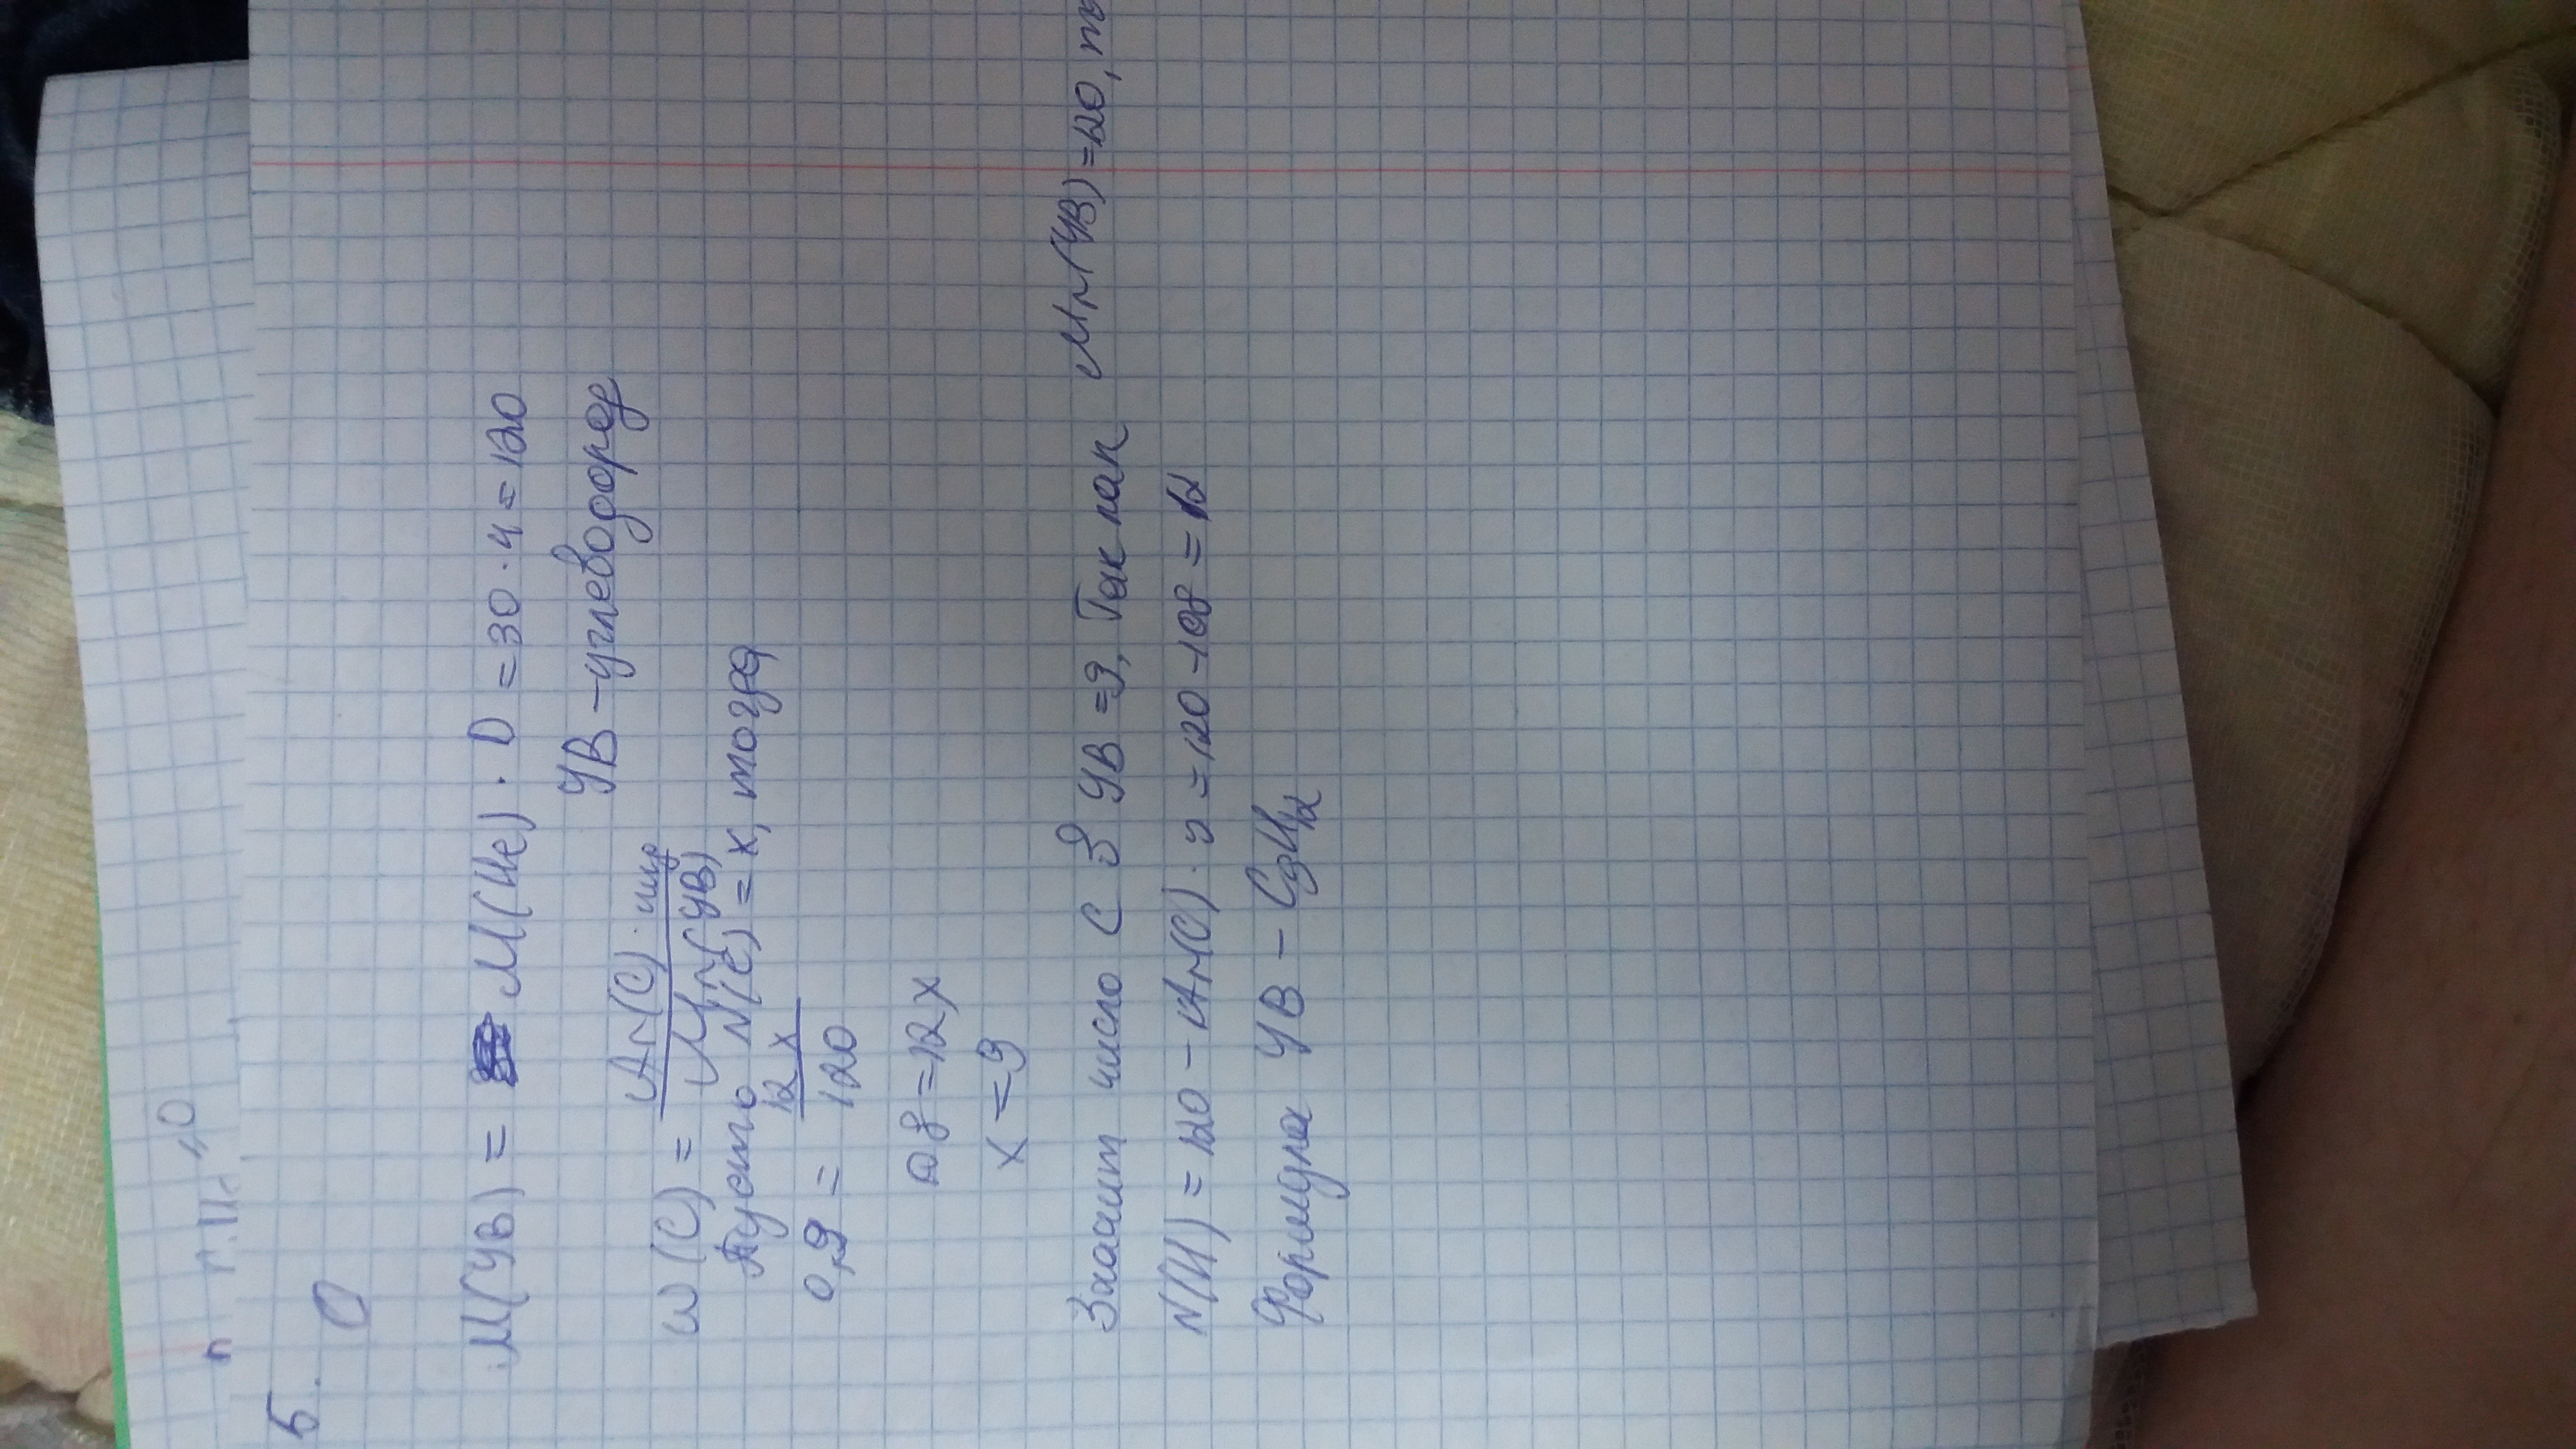 5.
M(УВ) = M(He) · D = 30 · 4 = 120
УВ – углеводород
ω(C) = Ar(C) · инд / Mr(УВ)
Пусть N(C) = x, тогда
0,9 = 12x / 120
108 = 12x
x = 9
Значит число C в УВ = 9, Так как Mr(УВ) = 120, то
N(H) = 120 – Ar(C) · 9 = 120 – 108 = 12
Формула УВ – C₉H₁₂